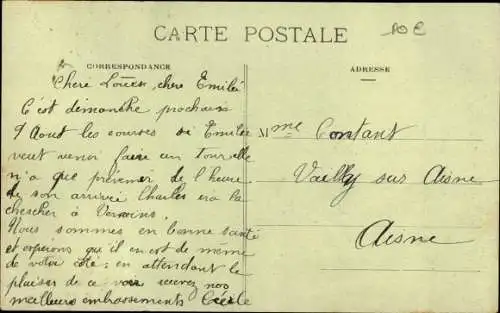 CARTE POSTALE
10 €
CORRESPONDANCE
ADRESSE
Chère Louise, chère Emilie
C'est dimanche prochain
9 Aout les courses si Emilie
veut venir faire un tour elle
n'a que prévenir de l'heure
de son arrivée Charles ira la
chescher à Vervins.
Nous sommes en bonne santé
et espérons qu'il en est de même
de votre côté ; en attendant le
plaisir de ce voir recevez nos
meilleurs embrassements Cécile
Mme Constant
Vailly sur Aisne
Aisne